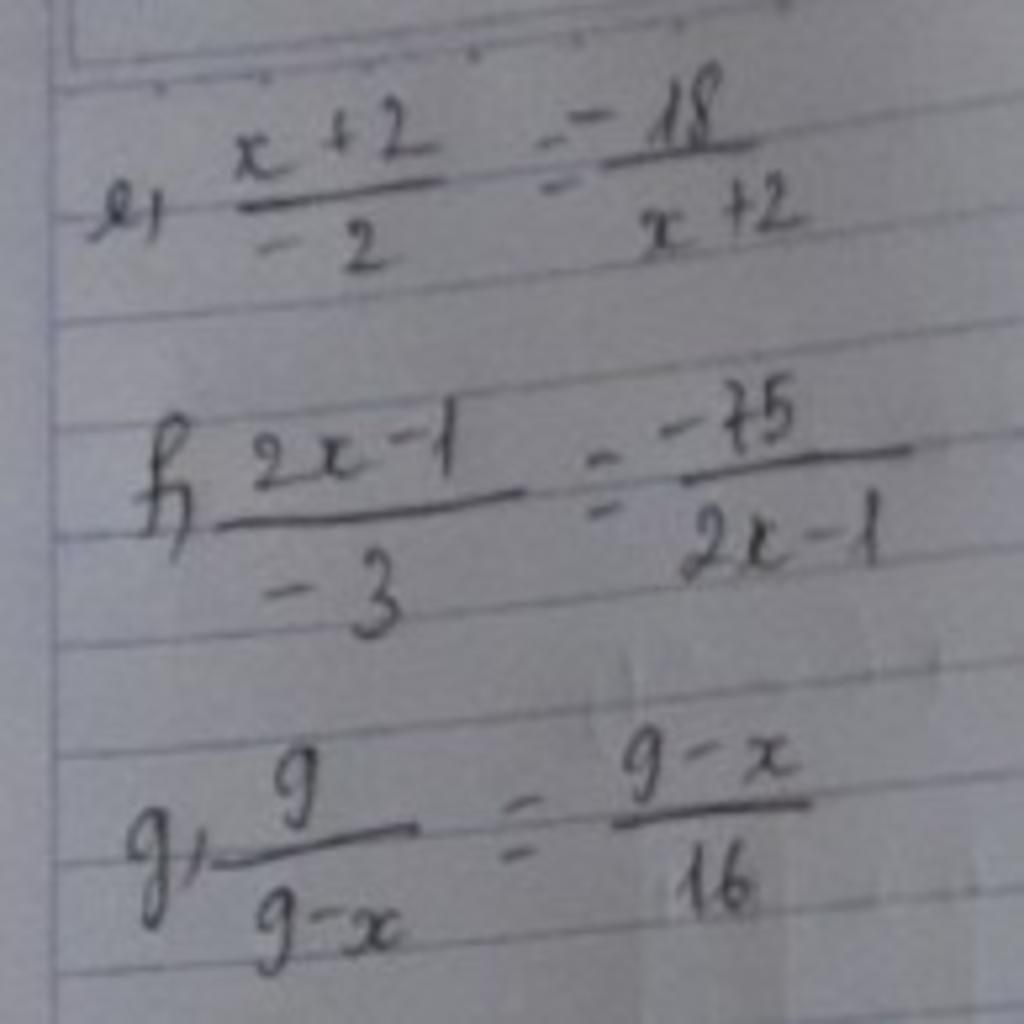 e, x + 2 / - 2 = - 18 / x + 2
f, 2x - 1 / - 3 = - 75 / 2x - 1
g, 9 / 9 - x = 9 - x / 16